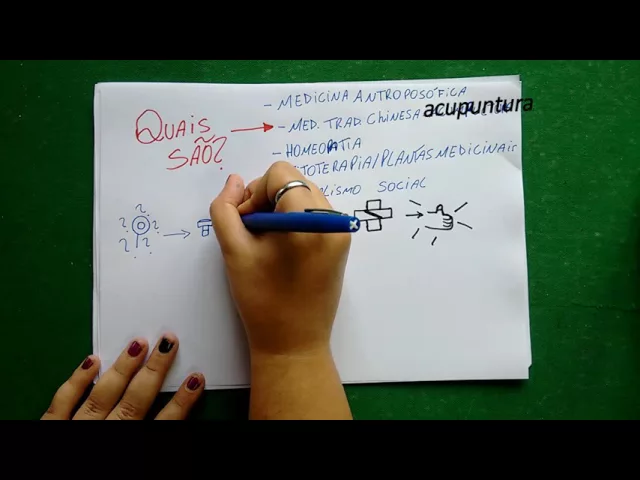 QUAIS SÃO?
- MEDICINA ANTROPOSÓFICA
- MED. TRAD. CHINESA acupuntura
- HOMEOPATIA
ITOTERAPIA/PLANTAS MEDICINAIS
LISMO SOCIAL
? ? ? ? ?